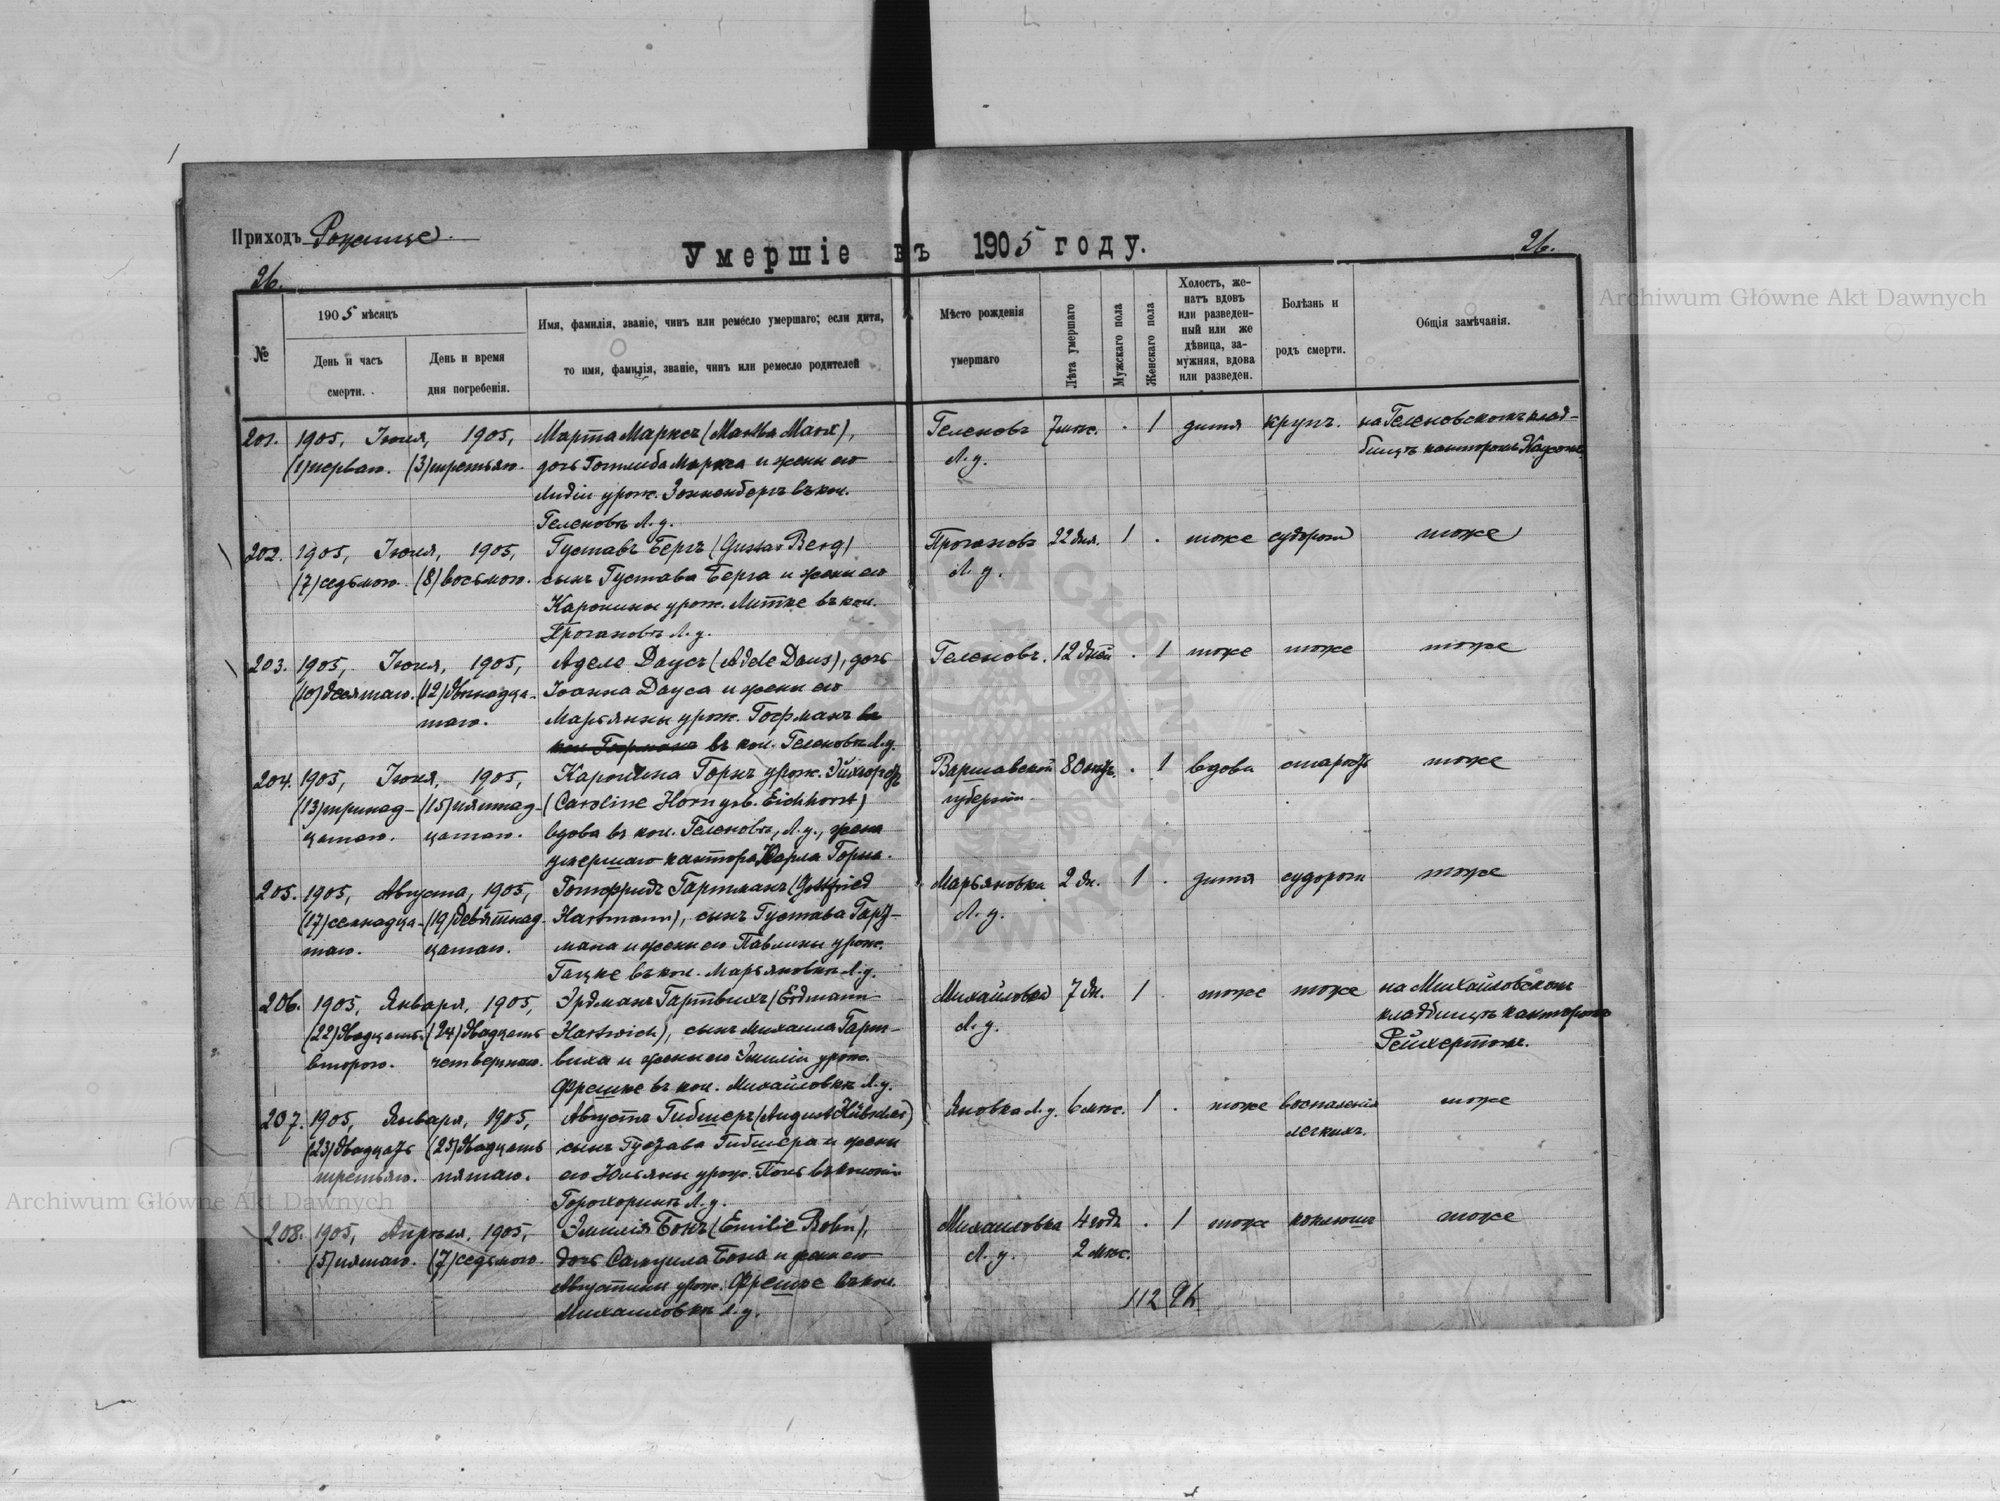 Приходъ Рожище.
Умершіе въ 1905 году.
26.
26.
№
1905 мѣсяцъ
День и часъ смерти.
День и время дня погребенія.
Имя, фамилія, званіе, чинъ или ремесло умершаго; если дитя,
то имя, фамилія, званіе, чинъ или ремесло родителей
Мѣсто рожденія умершаго
Лѣта умершаго
Мужскаго пола
Женскаго пола
Холостъ, же-
натъ вдовъ
или разведен-
ный или же
дѣвица, за-
мужняя, вдова
или разведен.
Болѣзнь и
родъ смерти.
Общія замѣчанія.
201. 1905, Іюня, 1905, Марта Марксъ (Martha Marx), Геленовъ 7 мѣс. . 1 дитя крупъ. на Геленовскомъ клад-
(1) перваго. (3) третьяго. дочь Готлиба Маркса и жены его Л. у. бищѣ канторомъ
Лидіи урож. Зонненбергъ въ кол.
Геленовъ Л. у.
202. 1905, Іюня, 1905, Густавъ Бергъ (Gustav Berg) 22 дня. 1 . тоже судороги тоже
(7) седьмого. (8) восьмого. сынъ Густава Берга и жены его Л. у.
Каролины урож. Литке въ кол.
Л. у.
203. 1905, Іюня, 1905, Аделе Даусъ (Adele Daus), дочь Геленовъ. 12 дней . 1 тоже тоже тоже
(10) десятаго. (12) двѣнадца- Іоанна Дауса и жены его
таго. Марьянны урож. Гофманъ въ
въ кол. Геленовъ Л. у.
204. 1905, Іюня, 1905, Каролина Горнъ урож. Эйхгорстъ Варшавской 80 лѣтъ. . 1 вдова старость тоже
(13) тринад- (15) пятнад- (Caroline Horn geb. Eichhorst) губерніи.
цатаго. цатаго. вдова въ кол. Геленовъ, Л. у., жена
умершаго кантора Карла Горна.
205. 1905, Августа, 1905, Готфридъ Гартманъ (Gottfried Марьяновка 2 дн. 1 . дитя судороги тоже
(17) семнадца- (19) девятнад- Hartmann), сынъ Густава Гарт- Л. у.
таго. цатаго. мана и жены его Павлины урож.
Гацке въ кол. Марьяновка Л. у.
206. 1905, Января, 1905, Эрдманъ Гартвихъ (Erdmann Михайловка 7 дн. 1 . тоже тоже на Михайловскомъ
(22) двадцать (24) двадцать Hartwich), сынъ Михаила Гарт- Л. у. кладбищѣ канторомъ
второго. четвертаго. виха и жены его Эмиліи урож. Рейхертомъ.
Фрешке въ кол. Михайловка Л. у.
207. 1905, Января, 1905, Августъ Гибшеръ (August Hübscher) Яновка Л. у. 6 мѣс. 1 . тоже воспаленія тоже
(23) двадцать (25) двадцать сынъ Густава Гибшера и жены легкихъ.
третьяго. пятаго. его Юльяны урож. Поль въ колоніи
Л. у.
208. 1905, Апрѣля, 1905, Эмилія Бонъ (Emilie Bohn), Михаиловка 4 года . 1 тоже коклюшъ тоже
(5) пятаго. (7) седьмого. дочь Самуила Бона и жены его Л. у. 2 мѣс.
Августины урож. Фрешке въ кол.
Михаиловка Л. у.
112 96
Archiwum Główne Akt Dawnych
Archiwum Główne Akt Dawnych